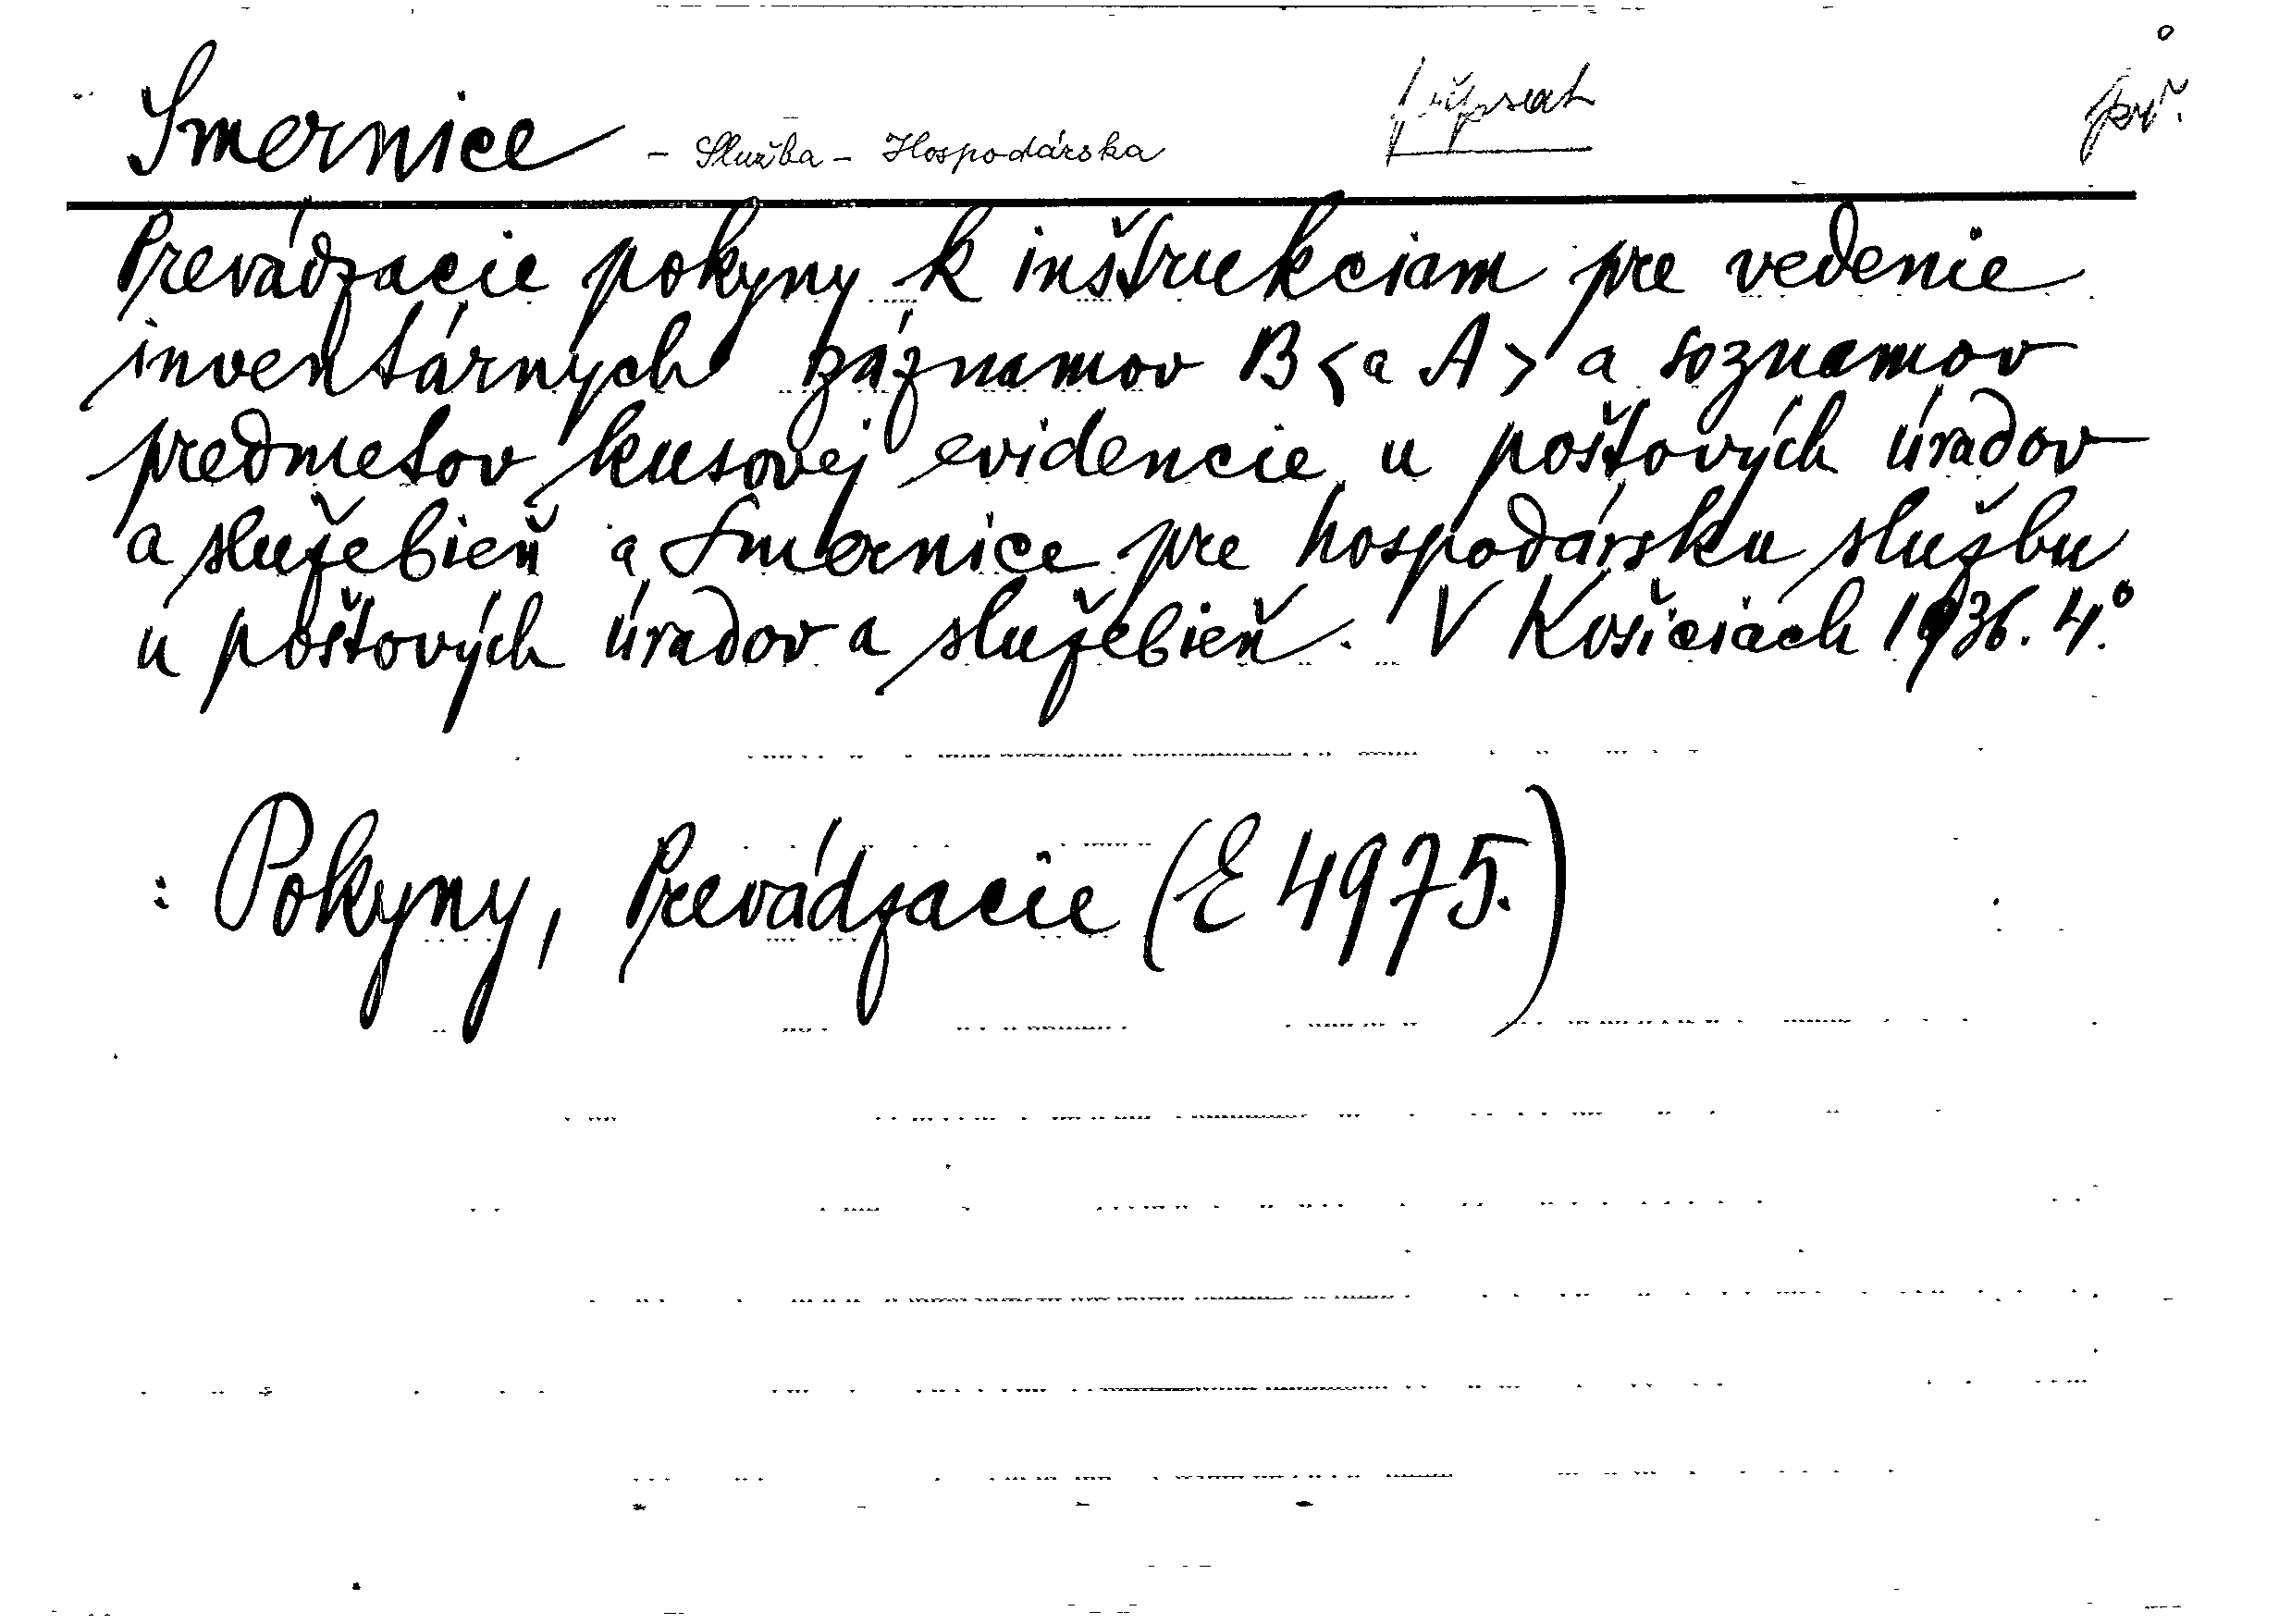 Smernice - Služba - Hospodárska připsat přív.
Prevádzacie pokyny k inštrukciam pre vedenie
inventárnych záznamov B <a A> a soznamov
predmetov kusovej evidencie u poštových úradov
a služebień a Smernice pre hospodársku službu
u poštových úradov a služebień. V Košiciach 1936. 4.°
: Pokyny, Prevádzacie (E 4975.)